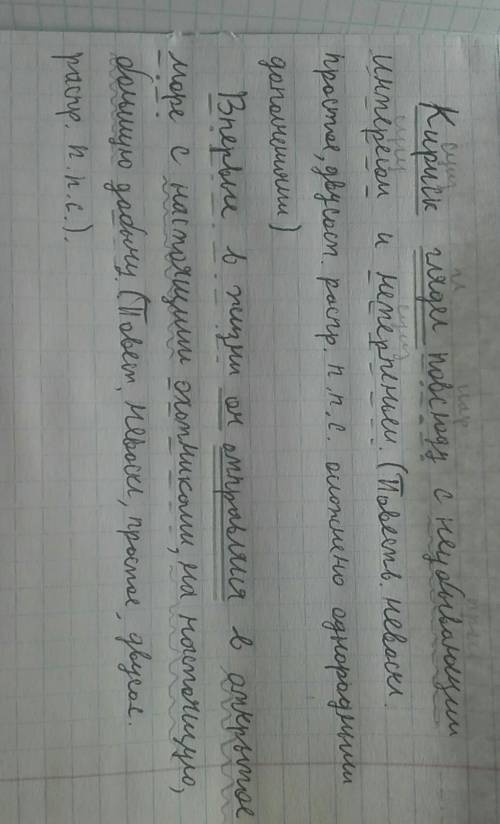 сущ гл нар прич
Кириск глядел повсюду с неубывающим
сущ сущ
интересом и нетерпеньем. (Повеств. невоскл.
простое, двусост. распр. п.п.с. осложнено однородными
дополнениями)
Впервые в жизни он отправлялся в открытое
море с настоящими охотниками, на настоящую,
большую добычу. (Повест, невоскл, простое, двусос.
распр. п.п.с.).